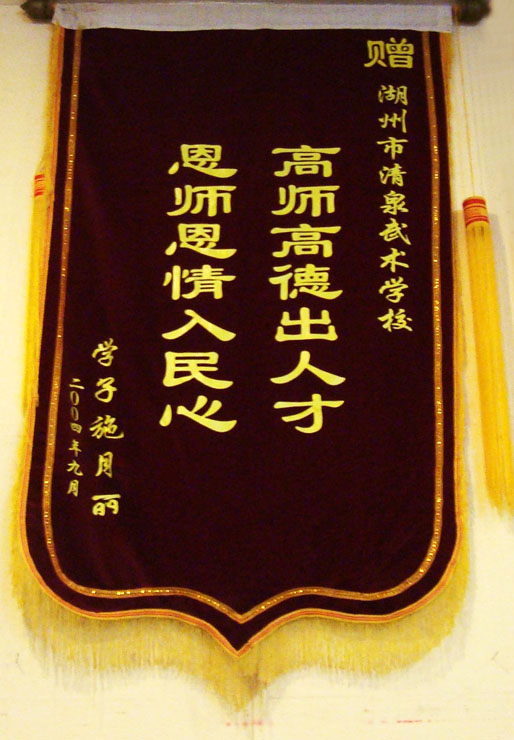 赠
湖州市清泉武术学校
高师高德出人才
恩师恩情入民心
学子施月丽
二00四年九月